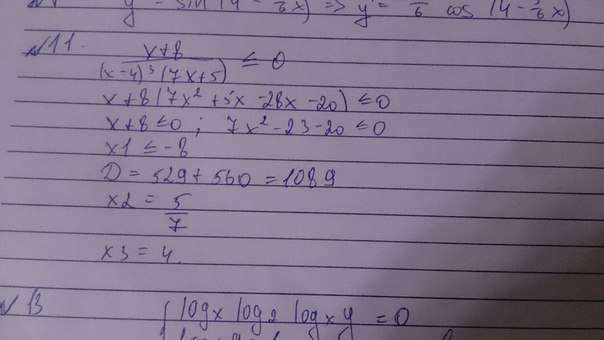 y = sin (4 - x) => y' = 6 cos (4 - x)
N 11.
x+8
(x-4)³(7x+5) ≤ 0
x+8(7x²+5x-28x-20) ≤ 0
x+8 ≤ 0 ; 7x²-23-20 ≤ 0
x1 ≤ -8
D = 529 + 560 = 1089
x2 = 5
7
x3 = 4.
N 13 { logx log2 logx y = 0